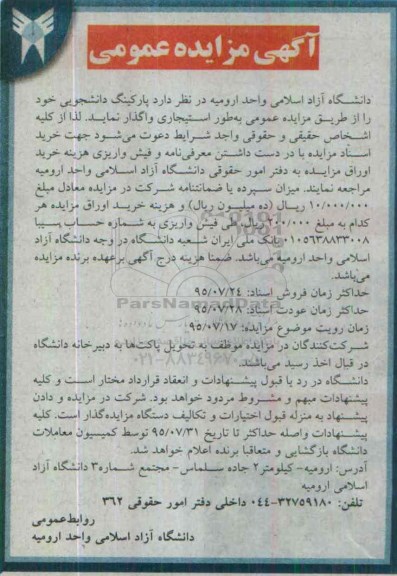 آگهی مزایده عمومی
دانشگاه آزاد اسلامی واحد ارومیه در نظر دارد پارکینگ دانشجویی خود
را از طریق مزایده عمومی به‌طور استیجاری واگذار نماید. لذا از کلیه
اشخاص حقیقی و حقوقی واجد شرایط دعوت می‌شود جهت خرید
اسناد مزایده با در دست داشتن معرفی‌نامه و فیش واریزی هزینه خرید
اوراق مزایده به دفتر امور حقوقی دانشگاه آزاد اسلامی واحد ارومیه
مراجعه نمایند. میزان سپرده یا ضمانتنامه شرکت در مزایده معادل مبلغ
۱۰/۰۰۰/۰۰۰ ریال (ده میلیون ریال) و هزینه خرید اوراق مزایده هر
کدام به مبلغ ۲۰۰/۰۰۰ ریال طی فیش واریزی به شماره حساب سیبا
۰۱۰۵۶۳۸۸۳۳۰۰۸ بانک ملی ایران شعبه دانشگاه در وجه دانشگاه آزاد
اسلامی واحد ارومیه می‌باشد. ضمنا هزینه درج آگهی برعهده برنده مزایده
می‌باشد.
حداکثر زمان فروش اسناد: ۹۵/۰۷/۲۴
حداکثر زمان عودت اسناد: ۹۵/۰۷/۲۸
زمان رویت موضوع مزایده: ۹۵/۰۷/۱۷
ParsNamadData
۰۲۱-۸۸۳۴۹۶۷۰
شرکت‌کنندگان در مزایده موظف به تحویل پاکت‌ها به دبیرخانه دانشگاه
در قبال اخذ رسید می‌باشند.
دانشگاه در رد یا قبول پیشنهادات و انعقاد قرارداد مختار است و کلیه
پیشنهادات مبهم و مشروط مردود خواهد بود. شرکت در مزایده و دادن
پیشنهاد به منزله قبول اختیارات و تکالیف دستگاه مزایده‌گذار است. کلیه
پیشنهادات واصله حداکثر تا تاریخ ۹۵/۰۷/۳۱ توسط کمیسیون معاملات
دانشگاه بازگشایی و متعاقبا برنده اعلام خواهد شد.
آدرس: ارومیه- کیلومتر۲ جاده سلماس- مجتمع شماره۳ دانشگاه آزاد
اسلامی ارومیه
تلفن: ۳۲۷۵۹۱۸۰-۰۴۴ داخلی دفتر امور حقوقی ۳۶۲
روابط‌عمومی
دانشگاه آزاد اسلامی واحد ارومیه